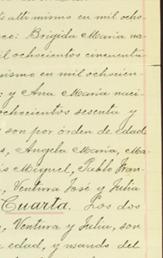 s alti mismo en mil ochs-
ce: Brigida Maria na-
il ochocientos cincuenta
ismo en mil ochocien-
y Ana Maria naci-
ochocientos sesenta y
son por órden de edad
s, Angela Maria, Ma-
is Miguel, Pablo Fran-
, Ventura José y Julia
Cuarta. Los dos
, Ventura y Julia, son
edad, y usando del